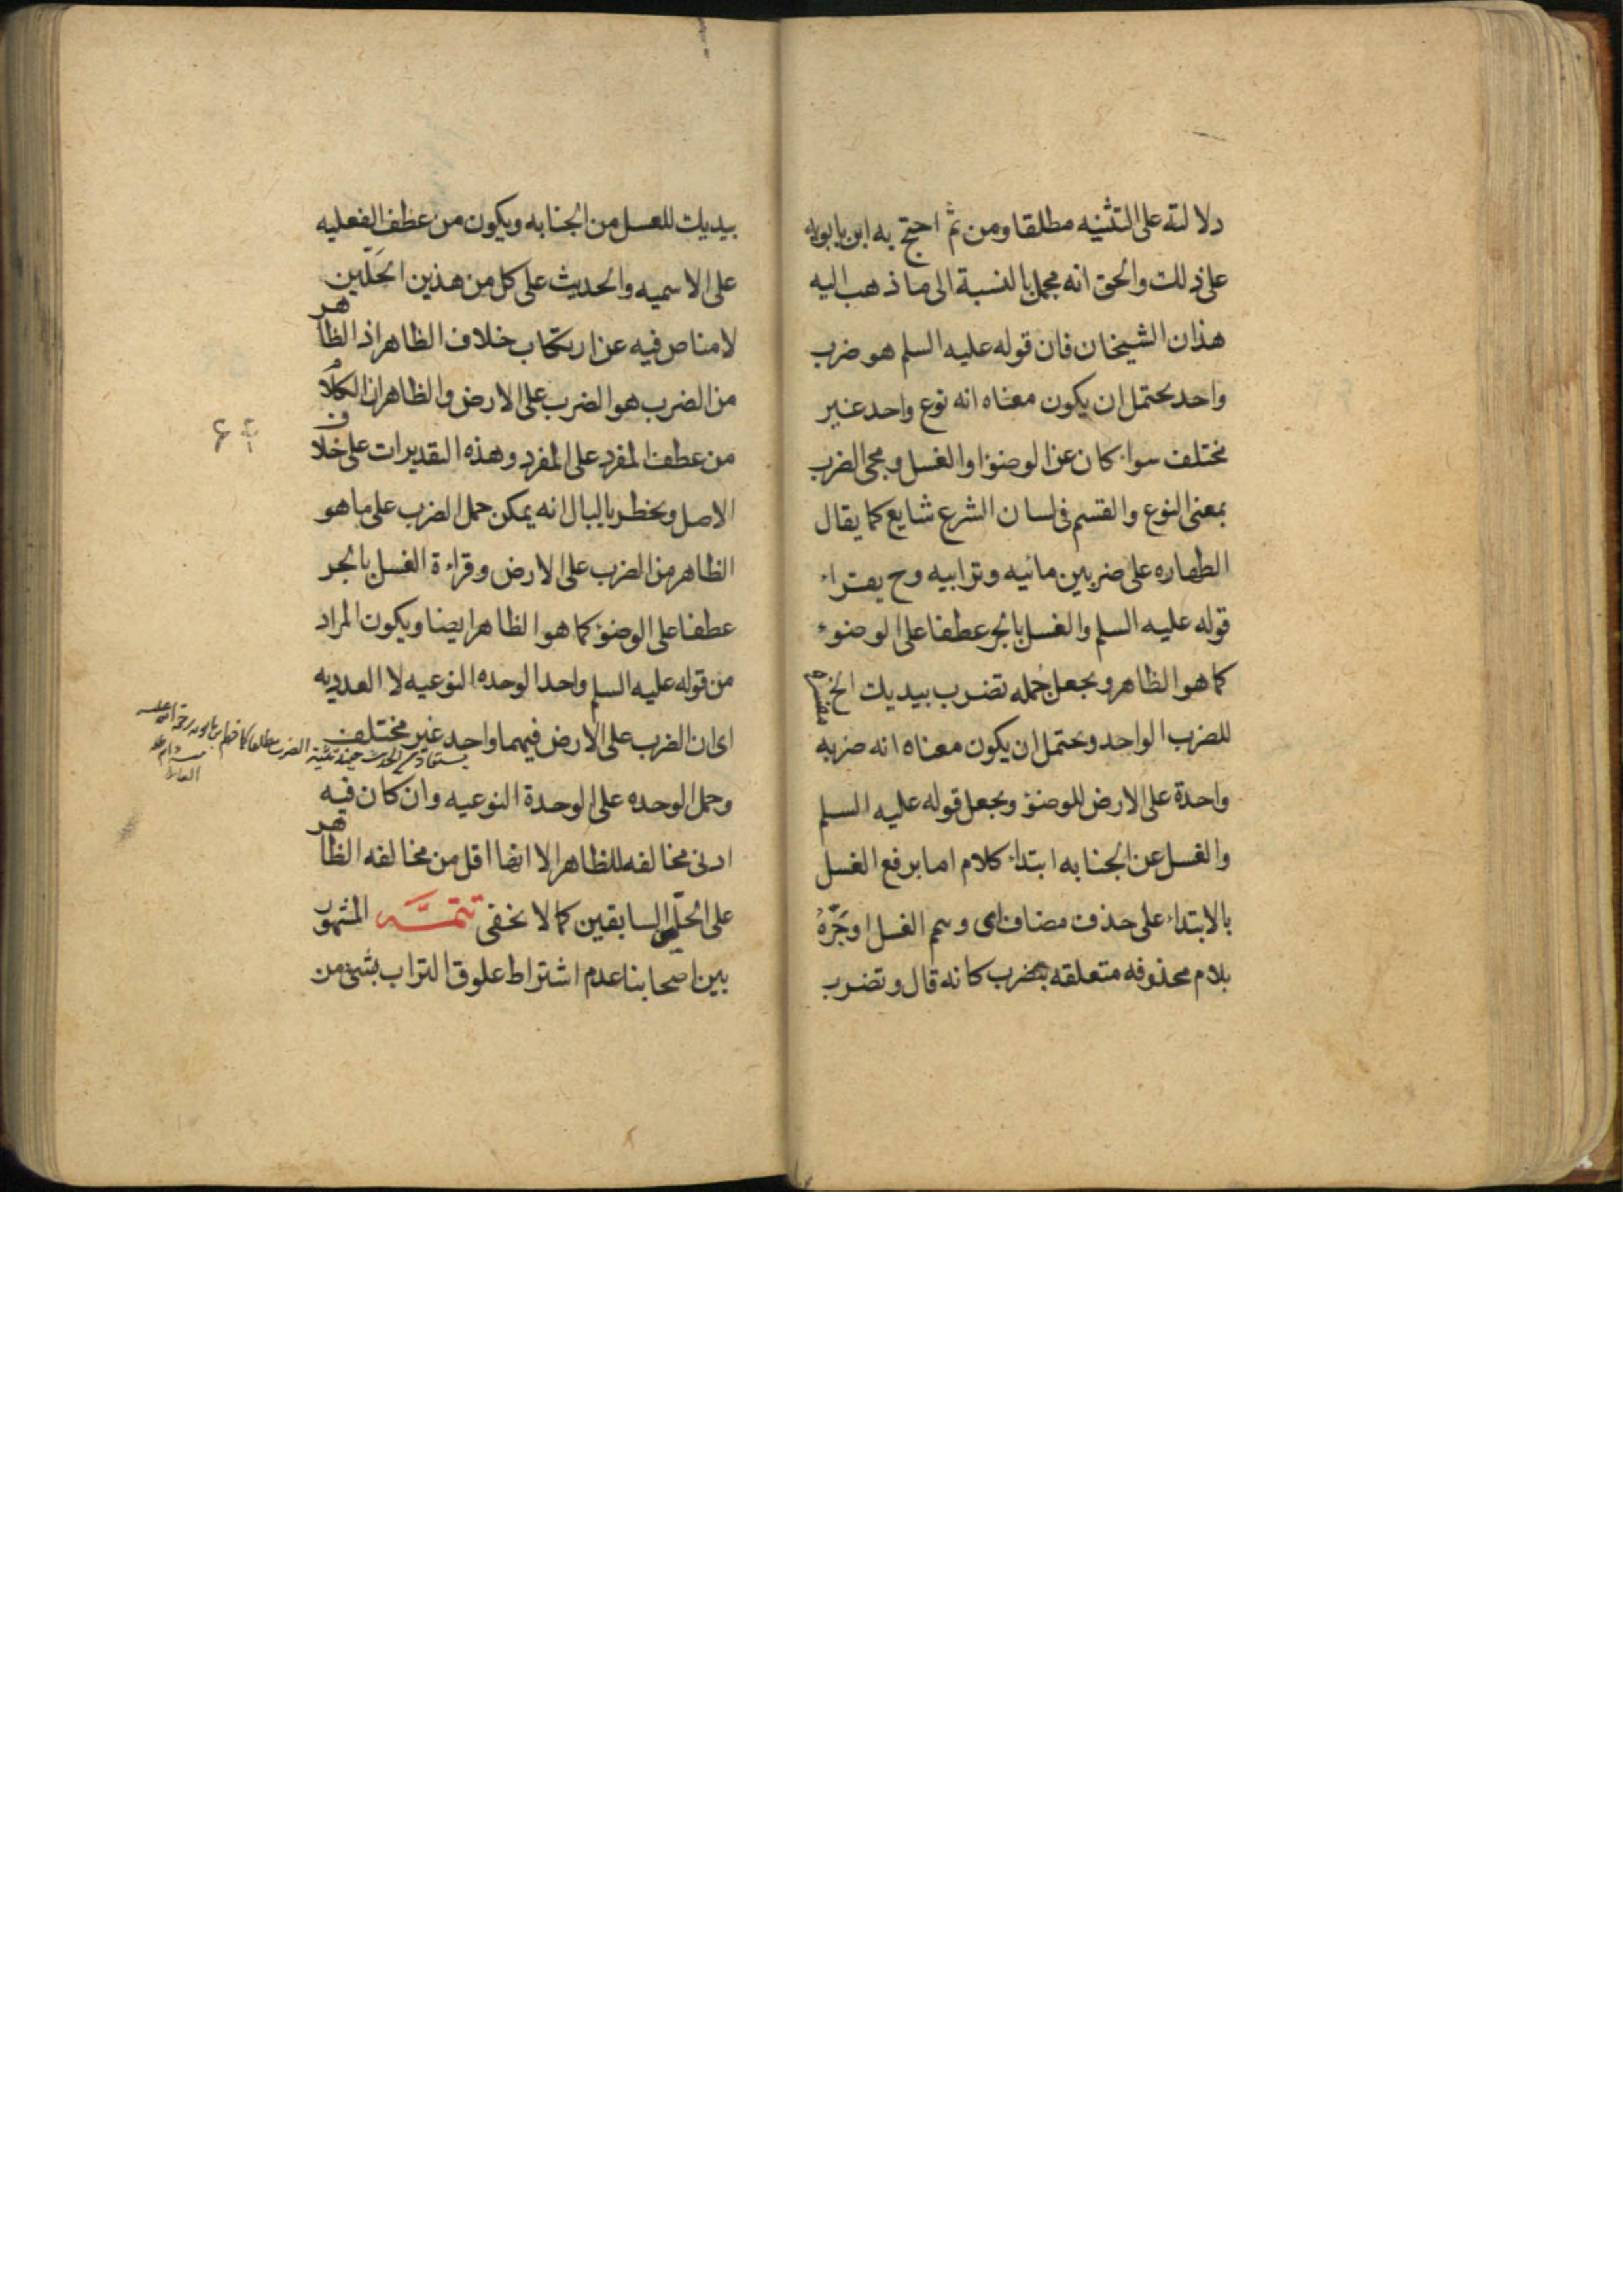 دلالته على التثنيه مطلقا ومن ثم احتج به ابن بابويه
على ذلك والحق انه مجمل بالنسبة الى ما ذهب اليه
هذان الشيخان فان قوله عليه السلم هو ضرب
واحد يحتمل ان يكون معناه انه نوع واحد غير
مختلف سواء كان عن الوضوء او الغسل ومجئ الضرب
بمعنى النوع والقسم فى لسان الشرع شايع كما يقال
الطهاره على ضربين مائيه وترابيه وح يقراء
قوله عليه السلم والغسل بالجر عطفا على الوضوء
كما هو الظاهر ويجعل جُمله تضرب بيديك الخ
للضرب الواحد ويحتمل ان يكون معناه انه ضربه
واحدة على الارض للوضوء ويجعل قوله عليه السلم
والغسل عن الجنابه ابتداء كلام اما برفع الغسل
بالابتداء على حذف مضاف اى وسم الغسل او بَجّرهُ
بلام محذوفه متعلقه بتضرب كانه قال وتضرب
بيديك للغسل من الجنابه ويكون من عطف الفعليه
على الاسميه والحديث على كل من هذين الحَلّين
لا مناص فيه عن ارتكاب خلاف الظاهر اذ الظاهر
من الضرب هو الضرب على الارض والظاهر ان الكلام
من عطف المفرد على المفرد وهذه التقديرات على خلاف
الاصل ويخطر بالبال انه يمكن حمل الضرب على ما هو
الظاهر من الضرب على الارض وقراءة الغسل بالجر
عطفا على الوضوء كما هو الظاهر ايضا ويكون المراد
من قوله عليه السلم واحد الوحده النوعيه لا العدديه
اى ان الضرب على الارض فيهما واحد غير مختلف
وحمل الوحده على الوحدة النوعيه وان كان فيه
ادنى مخالفه للظاهر الا انها اقل من مخالفه الظاهر
على الحلّين السابقين كما لا يخفى تتمَّــه المشهور
بين اصحابنا عدم اشتراط علوق التراب بشئ من
تثنية الضرب مطلقا كما فهم ابن بابويه رحمة الله عليه